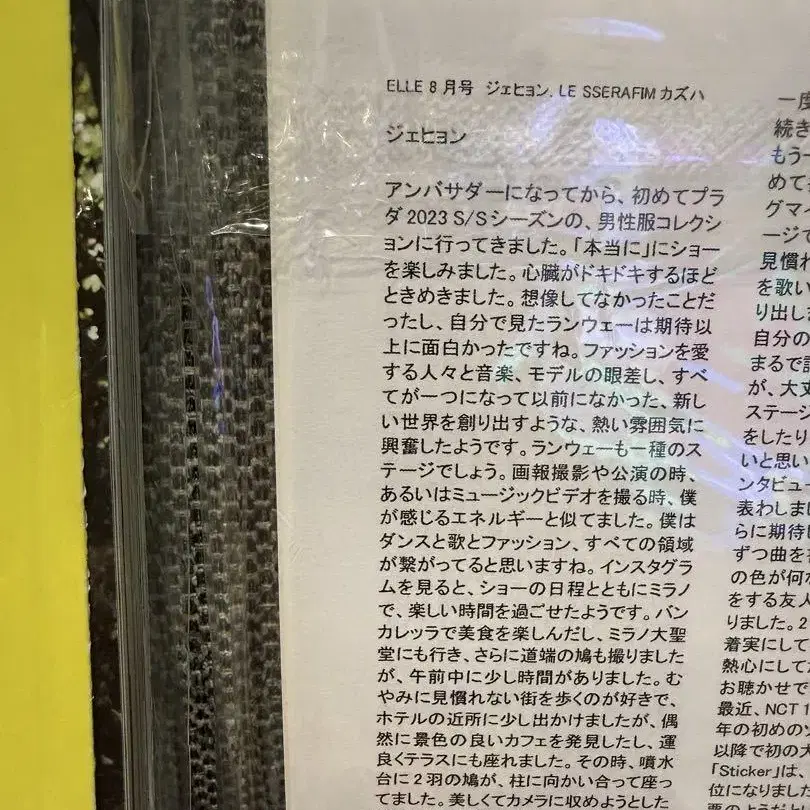 ELLE 8月号 ジェヒョン, LE SSERAFIM カズハ
ジェヒョン
アンバサダーになってから、初めてプラ
ダ 2023 S/Sシーズンの、男性服コレクシ
ョンに行ってきました。「本当に」にショー
を楽しみました。心臓がドキドキするほど
ときめきました。想像してなかったことだ
ったし、自分で見たランウェーは期待以
上に面白かったですね。ファッションを愛
する人々と音楽、モデルの眼差し、すべ
てが一つになって以前になかった、新し
い世界を創り出すような、熱い雰囲気に
興奮したようです。ランウェーも一種のス
テージでしょう。画報撮影や公演の時、
あるいはミュージックビデオを撮る時、僕
が感じるエネルギーと似てました。僕は
ダンスと歌とファッション、すべての領域
が繋がってると思いますね。インスタグラ
ムを見ると、ショーの日程とともにミラノ
で、楽しい時間を過ごせたようです。バン
カレッラで美食を楽しんだし、ミラノ大聖
堂にも行き、さらに道端の鳩も撮りました
が、午前中に少し時間がありました。む
やみに見慣れない街を歩くのが好きで、
ホテルの近所に少し出かけましたが、偶
然に景色の良いカフェを発見したし、運
良くテラスにも座れました。その時、噴水
台に2羽の鳩が、柱に向かい合って座っ
てました。美しくてカメラに収めようとした
一度
続き
もう一
めて
グマイ
ージで
見慣れ
を歌い
り出しま
自分の
まるで
が、大丈
ステージ
をしたり
いと思い
ンタビュー
表わしまし
らに期待
ずつ曲を
の色が何
をする友人
りました。2
着実にして
熱心にして
お聴かせで
最近、NCT 1
年の初めの
以降で初の大
「Sticker」は、
位になりました